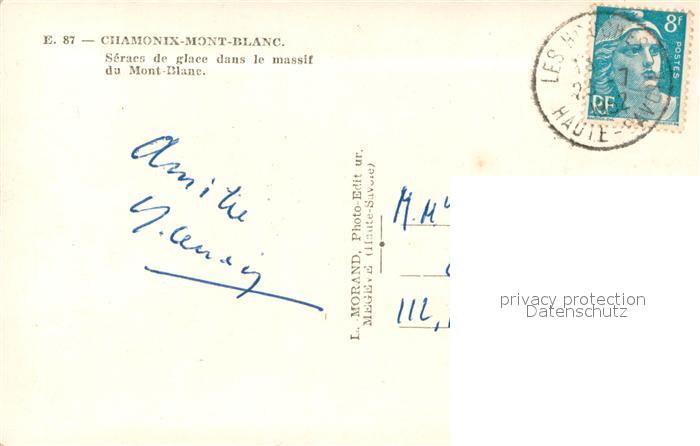 E. 87 — CHAMONIX-MONT-BLANC.
Séracs de glace dans le massif
du Mont-Blanc.
8F
POSTES
RF
LES H
HAUTE-SAVOIE
Amitié
L. MORAND, Photo-Edit ur.
MEGÈVE (Haute-Savoie)
112,
privacy protection
Datenschutz